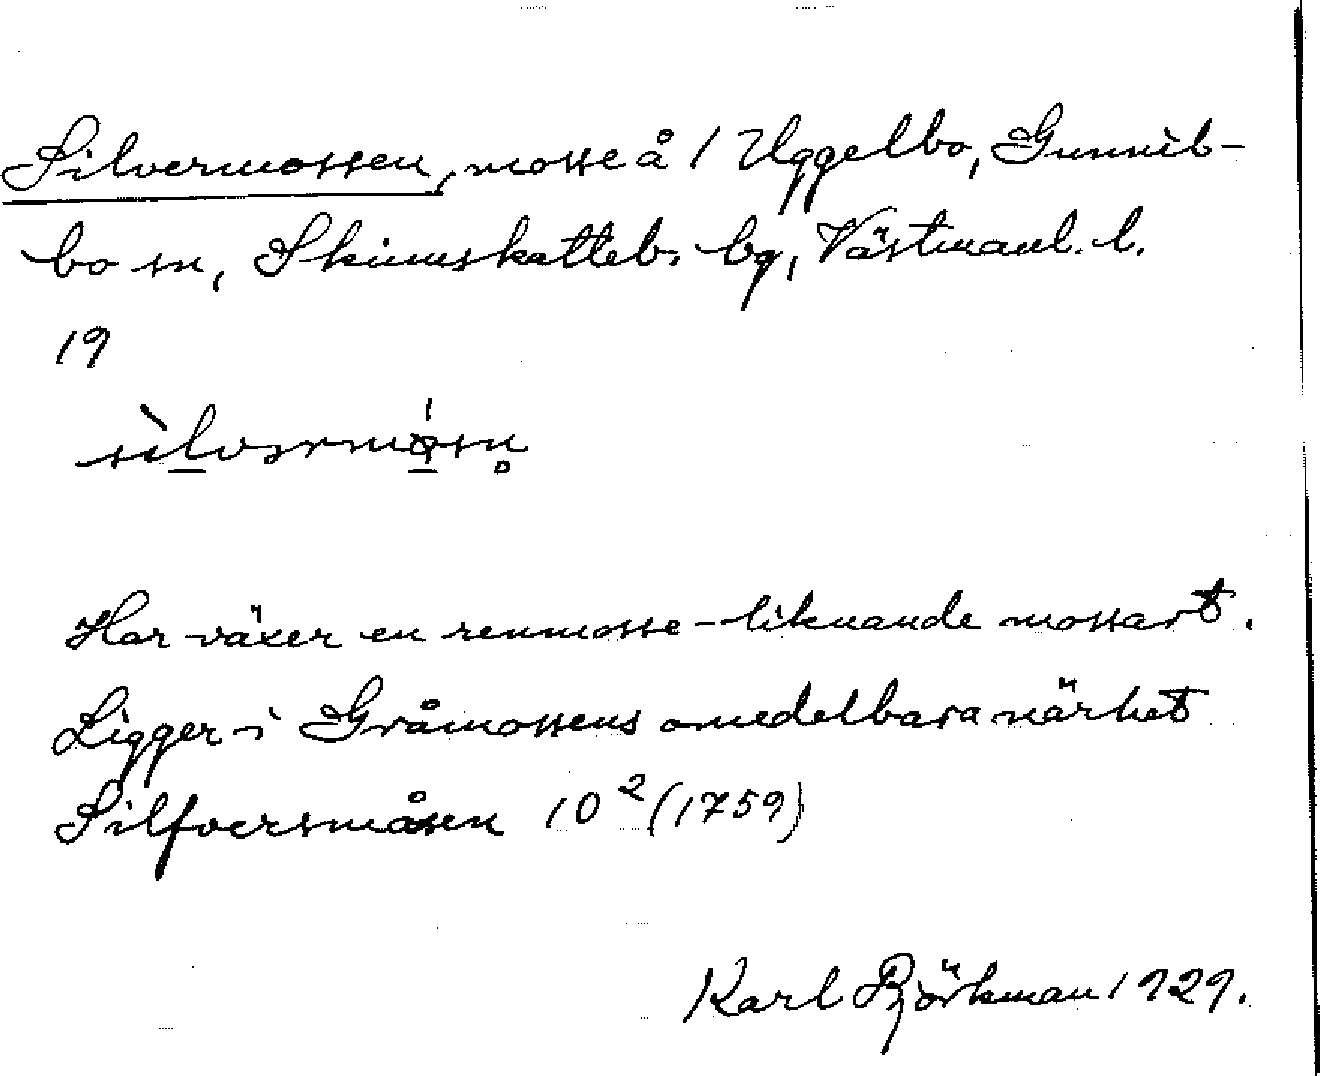 Silvermossen, mosse å 1 Uggelbo, Gunnils-
bo sn, Skinnskatteb. bg, Västmanl. l.
19
sìlvərmósn̥
Här växer en renmosse-liknande mossart.
Ligger i Gråmossens omedelbara närhet
Silfversmåsen 10² (1759)
Karl Björkman 1929.